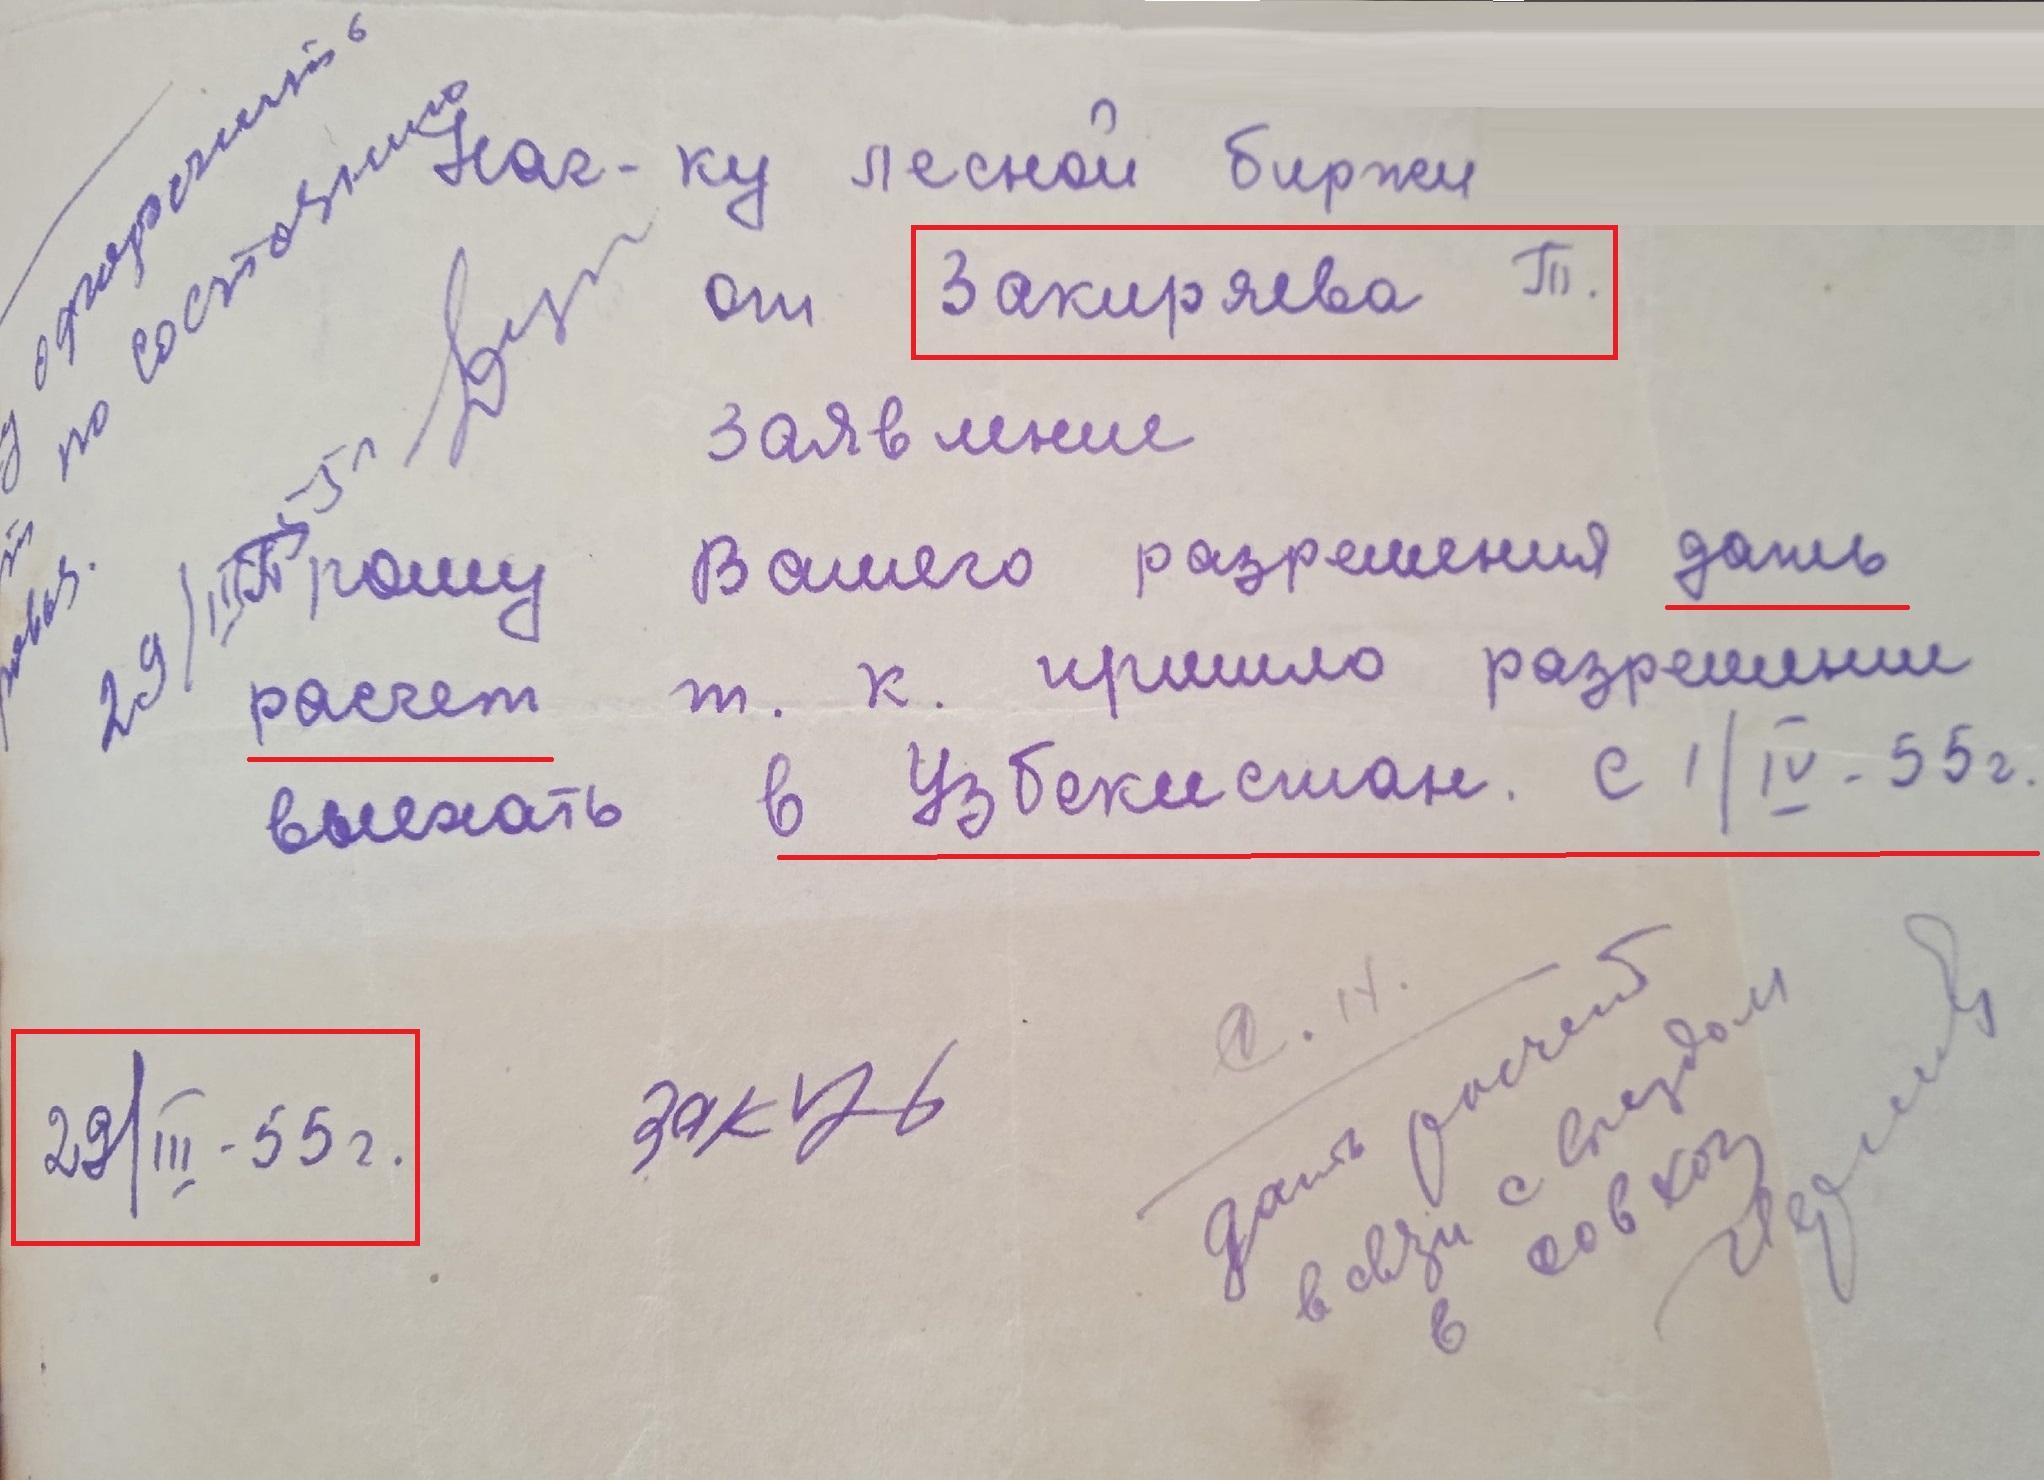 Нач-ку лесной биржи
от Закиряева Т.
Заявление
Прошу Вашего разрешения дать
расчет т. к. пришло разрешение
выехать в Узбекистан. С 1/IV - 55г.
29/III - 55г.
по состоянию
29/III-5
дать расчет
в связи с выездом
в совхоз